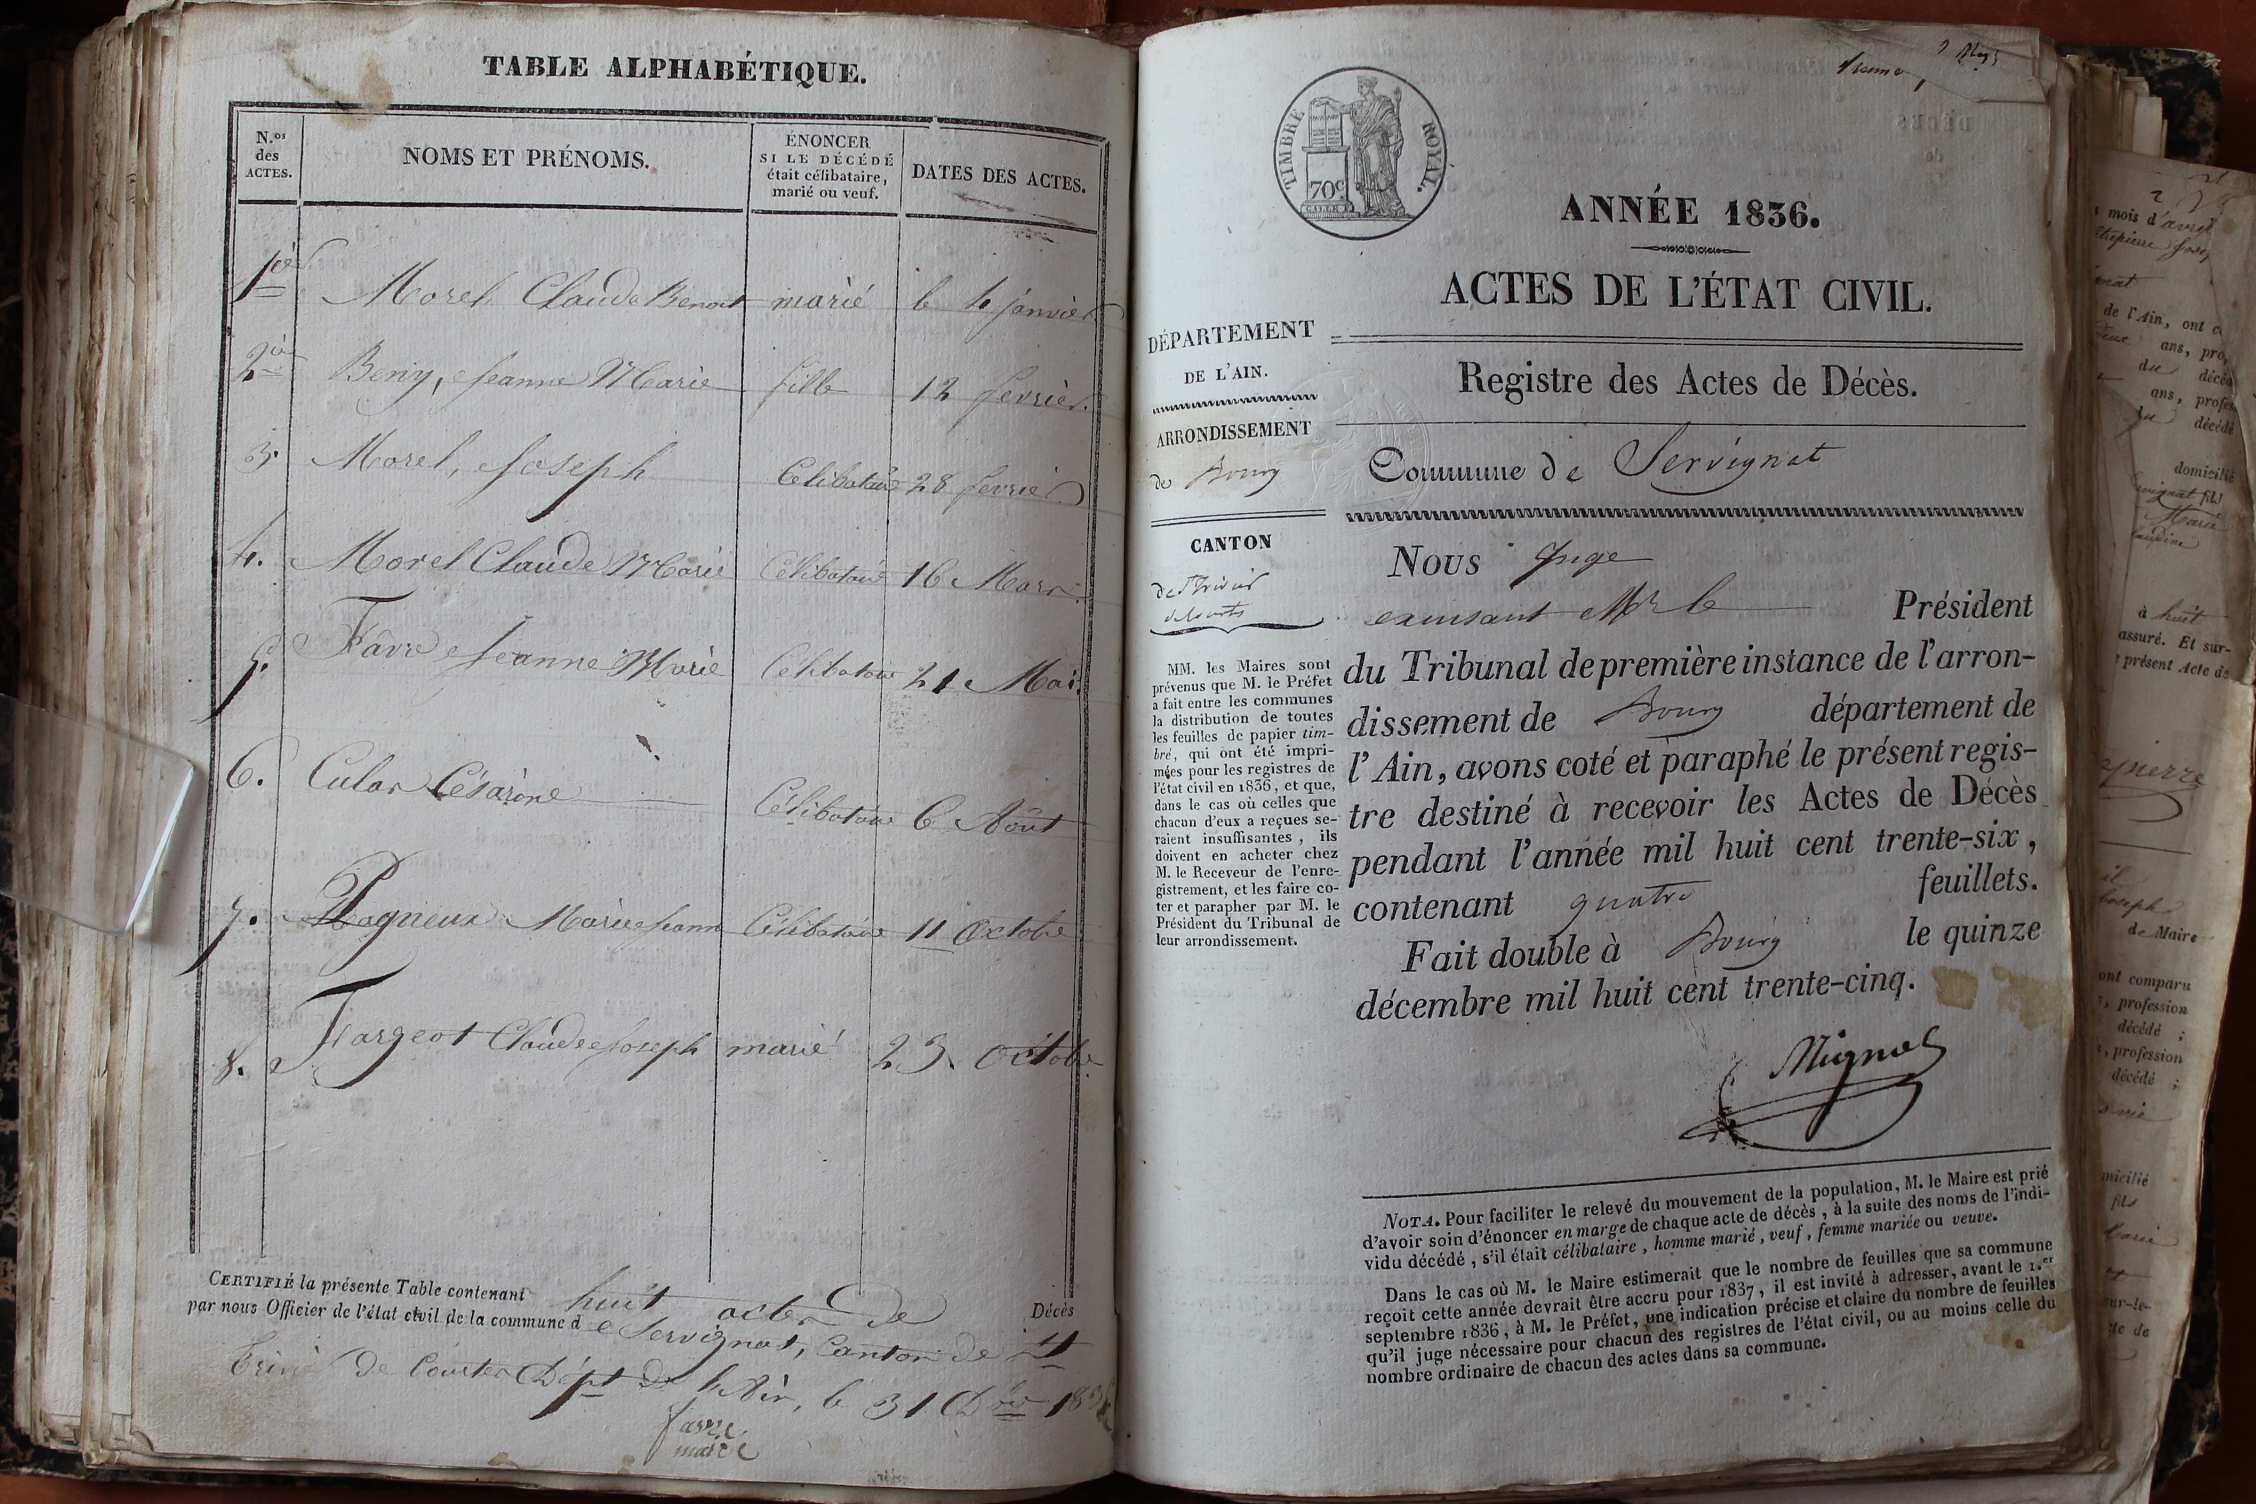 TABLE ALPHABÉTIQUE.
N.os des ACTES.
NOMS ET PRÉNOMS.
ÉNONCER
SI LE DÉCÉDÉ
était célibataire,
marié ou veuf.
DATES DES ACTES.
1er Morel Claude Benoit marié le 4 janvier
2e Beny, Jeanne Marie fille 12 fevrièr.
3. Morel, Joseph Célibataire 28 fevrier
4. Morel Claude Marie Célibataire 16 Mars.
5. Favre Jeanne Marie Célibataire 21 Mai.
6. Cular Césarine Célibataire 6 Août
7. Pagneux Marie Jeanne Célibataire 11 Octobre
8. Fargeot Claude Joseph marié 23. Octobre
CERTIFIÉ la présente Table contenant huit actes de Décès
par nous Officier de l'état civil de la commune de Servignat, Canton de St
Trivier de Courtes Dépt de l'Ain, le 31 Dbre 1836
favre
maire
TIMBRE ROYAL.
70c
ANNÉE 1836.
ACTES DE L'ÉTAT CIVIL.
DÉPARTEMENT
DE L'AIN.
ARRONDISSEMENT
de Bourg
CANTON
de St Trivier
de Courtes
MM. les Maires sont
prévenus que M. le Préfet
a fait entre les communes
la distribution de toutes
les feuilles de papier tim-
bré, qui ont été impri-
mées pour les registres de
l'état civil en 1836, et que,
dans le cas où celles que
chacun d'eux a reçues se-
raient insuffisantes, ils
doivent en acheter chez
M. le Receveur de l'enre-
gistrement, et les faire co-
ter et parapher par M. le
Président du Tribunal de
leur arrondissement.
Registre des Actes de Décès.
Commune de Servignat
Nous Juge
excusant Mr le Président
du Tribunal de première instance de l'arron-
dissement de Bourg département de
l'Ain, avons coté et paraphé le présent regis-
tre destiné à recevoir les Actes de Décès
pendant l'année mil huit cent trente-six,
contenant quatre feuillets.
Fait double à Bourg le quinze
décembre mil huit cent trente-cinq.
NOTA. Pour faciliter le relevé du mouvement de la population, M. le Maire est prié
d'avoir soin d'énoncer en marge de chaque acte de décès, à la suite des noms de l'indi-
vidu décédé, s'il était célibataire, homme marié, veuf, femme mariée ou veuve.
Dans le cas où M. le Maire estimerait que le nombre de feuilles que sa commune
reçoit cette année devrait être accru pour 1837, il est invité à adresser, avant le 1.er
septembre 1836, à M. le Préfet, une indication précise et claire du nombre de feuilles
qu'il juge nécessaire pour chacun des registres de l'état civil, ou au moins celle du
nombre ordinaire de chacun des actes dans sa commune.
mois d'avril
de l'Ain, ont
ans, pro
du décéd
ans, profes
décédé
domicilié
à huit
assuré. Et sur-
présent Acte de
de Maire
ont comparu
, profession
décédé ;
, profession
décédé ;
micilié
fils
sur-le-